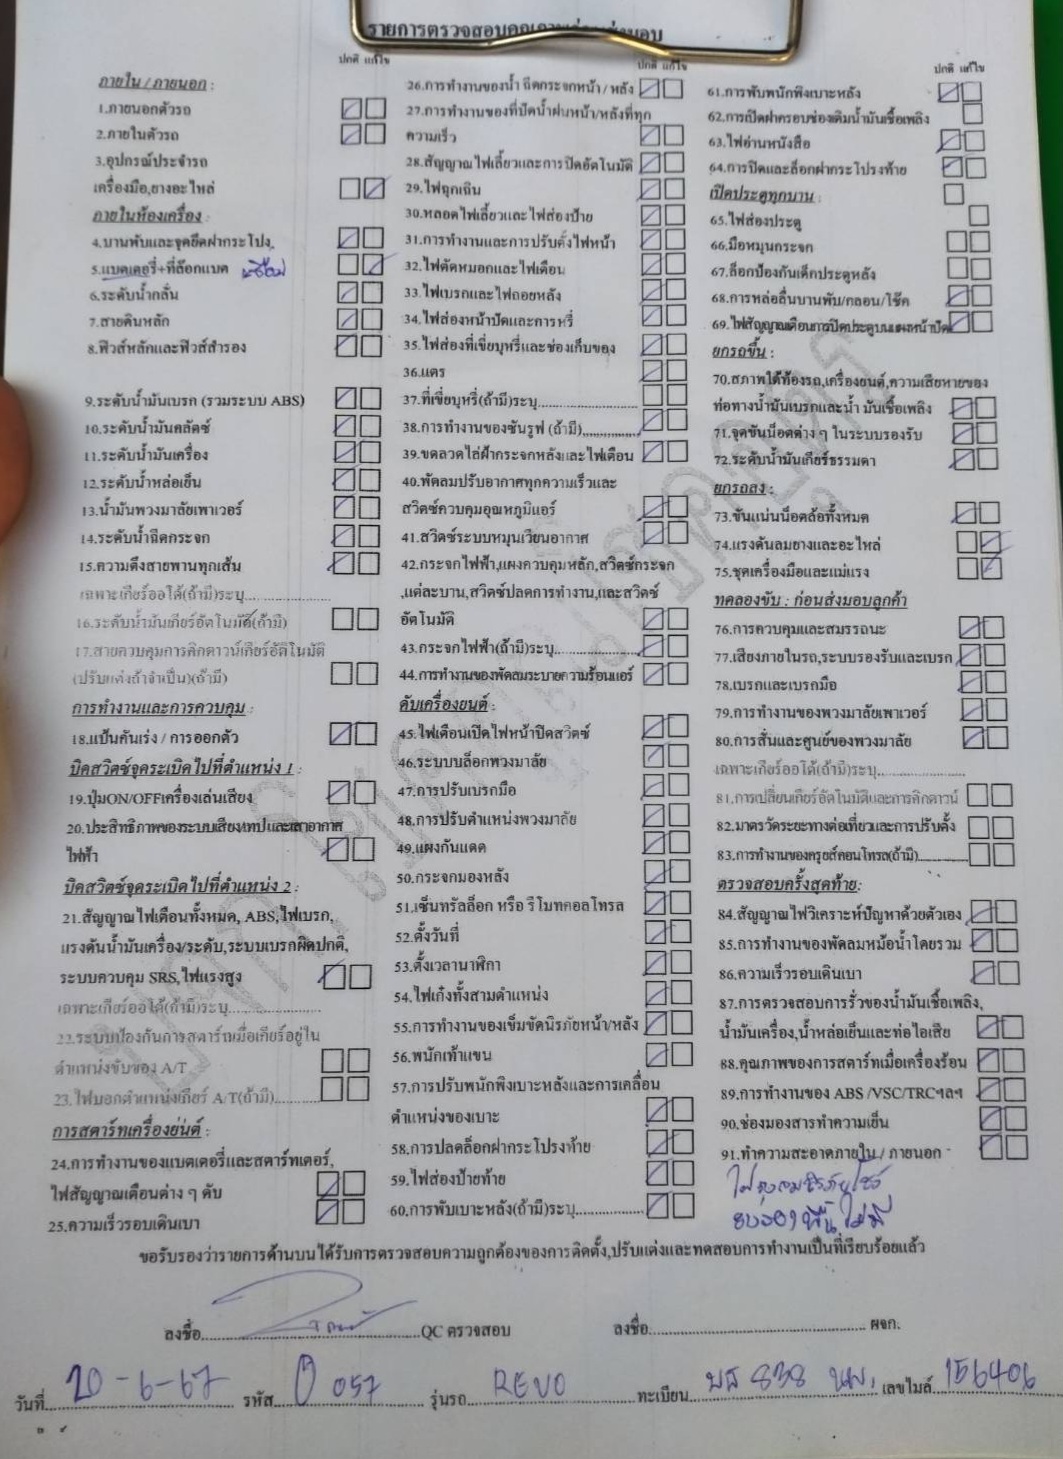 รายการตรวจสอบคุณภาพก่อนส่งมอบ
ปกติ แก้ไข
ภายใน / ภายนอก :
1.ภายนอกตัวรถ
2.ภายในตัวรถ
3.อุปกรณ์ประจำรถ
เครื่องมือ,ยางอะไหล่
ภายในห้องเครื่อง :
4.บานพับและจุดยึดฝากระโปง.
5.แบตเตอรี่+ที่ล๊อกแบต
6.ระดับน้ำกลั่น
7.สายดินหลัก
8.ฟิวส์หลักและฟิวส์สำรอง
9.ระดับน้ำมันเบรก (รวมระบบ ABS)
10.ระดับน้ำมันคลัตช์
11.ระดับน้ำมันเครื่อง
12.ระดับน้ำหล่อเย็น
13.น้ำมันพวงมาลัยเพาเวอร์
14.ระดับน้ำฉีดกระจก
15.ความตึงสายพานทุกเส้น
เฉพาะเกียร์ออโต้(ถ้ามี)ระบุ....................
16.ระดับน้ำมันเกียร์อัตโนมัติ(ถ้ามี)
17.สายควบคุมการคิกดาวน์เกียร์อัติโนมัติ
(ปรับแต่งถ้าจำเป็น)(ถ้ามี)
การทำงานและการควบคุม :
18.แป้นคันเร่ง / การออกตัว
บิดสวิตซ์จุดระเบิดไปที่ตำแหน่ง 1 :
19.ปุ่มON/OFFเครื่องเล่นเสียง
20.ประสิทธิภาพของระบบเสียงเทปและเสาอากาศ
ไฟฟ้า
บิดสวิตซ์จุดระเบิดไปที่ตำแหน่ง 2 :
21.สัญญาณไฟเตือนทั้งหมด, ABS,ไฟเบรก,
แรงดันน้ำมันเครื่อง/ระดับ,ระบบเบรกผิดปกติ,
ระบบควบคุม SRS,ไฟแรงสูง
เฉพาะเกียร์ออโต้(ถ้ามี)ระบุ....................
22.ระบบป้องกันการสตาร์ทเมื่อเกียร์อยู่ใน
ตำแหน่งขับของ A/T
23.ไฟบอกตำแหน่งเกียร์ A/T(ถ้ามี)..........
การสตาร์ทเครื่องย่นต์ :
24.การทำงานของแบตเตอรี่และสตาร์ทเตอร์,
ไฟสัญญาณเตือนต่าง ๆ ดับ
25.ความเร็วรอบเดินเบา
ปกติ แก้ไข
26.การทำงานของน้ำ ฉีดกระจกหน้า / หลัง
27.การทำงานของที่ปัดน้ำฝนหน้า/หลังที่ทุก
ความเร็ว
28.สัญญาณไฟเลี้ยวและการปิดอัตโนมัติ
29.ไฟฉุกเฉิน
30.หลอดไฟเลี้ยวและไฟส่องป้าย
31.การทำงานและการปรับตั้งไฟหน้า
32.ไฟตัดหมอกและไฟเตือน
33.ไฟเบรกและไฟถอยหลัง
34.ไฟส่องหน้าปัดและการหรี่
35.ไฟส่องที่เขี่ยบุหรี่และช่องเก็บของ
36.แตร
37.ที่เขี่ยบุหรี่(ถ้ามี)ระบุ........................
38.การทำงานของซันรูฟ (ถ้ามี)..............
39.ขดลวดไล่ฝ้ากระจกหลังและไฟเตือน
40.พัดลมปรับอากาศทุกความเร็วและ
สวิตซ์ควบคุมอุณหภูมิแอร์
41.สวิตซ์ระบบหมุนเวียนอากาศ
42.กระจกไฟฟ้า,แผงควบคุมหลัก,สวิตซ์กระจก
,แต่ละบาน,สวิตซ์ปลดการทำงาน,และสวิตซ์
อัตโนมัติ
43.กระจกไฟฟ้า(ถ้ามี)ระบุ....................
44.การทำงานของพัดลมระบายความร้อนแอร์
ดับเครื่องยนต์ :
45.ไฟเตือนเปิดไฟหน้าปิดสวิตซ์
46.ระบบบล็อกพวงมาลัย
47.การปรับเบรกมือ
48.การปรับตำแหน่งพวงมาลัย
49.แผงกันแดด
50.กระจกมองหลัง
51.เซ็นทรัลล็อก หรือ รีโมทคอลโทรล
52.ตั้งวันที่
53.ตั้งเวลานาฬิกา
54.ไฟเก๋งทั้งสามตำแหน่ง
55.การทำงานของเข็มขัดนิรภัยหน้า/หลัง
56.พนักเท้าแขน
57.การปรับพนักพิงเบาะหลังและการเคลื่อน
ตำแหน่งของเบาะ
58.การปลดล็อกฝากระโปรงท้าย
59.ไฟส่องป้ายท้าย
60.การพับเบาะหลัง(ถ้ามี)ระบุ.................
ปกติ แก้ไข
61.การพับพนักพิงเบาะหลัง
62.การเปิดฝาครอบช่องเติมน้ำมันเชื้อเพลิง
63.ไฟอ่านหนังสือ
64.การปิดและล็อกฝากระโปรงท้าย
เปิดประตูทุกบาน :
65.ไฟส่องประตู
66.มือหมุนกระจก
67.ล็อกป้องกันเด็กประตูหลัง
68.การหล่อลื่นบานพับ/กลอน/โช๊ค
69.ไฟสัญญาณเตือนการปิดประตูบนแผงหน้าปัด
ยกรถขึ้น :
70.สภาพใต้ท้องรถ,เครื่องยนต์,ความเสียหายของ
ท่อทางน้ำมันเบรกและน้ำ มันเชื้อเพลิง
71.จุดขันน็อตต่าง ๆ ในระบบรองรับ
72.ระดับน้ำมันเกียร์ธรรมดา
ยกรถลง :
73.ขันแน่นน็อตล้อทั้งหมด
74.แรงดันลมยางและอะไหล่
75.ชุดเครื่องมือและแม่แรง
ทดลองขับ : ก่อนส่งมอบลูกค้า
76.การควบคุมและสมรรถนะ
77.เสียงภายในรถ,ระบบรองรับและเบรก
78.เบรกและเบรกมือ
79.การทำงานของพวงมาลัยเพาเวอร์
80.การสั่นและศูนย์ของพวงมาลัย
เฉพาะเกียร์ออโต้(ถ้ามี)ระบุ....................
81.การเปลี่ยนเกียร์อัตโนมัติและการคิกดาวน์
82.มาตรวัดระยะทางต่อเที่ยวและการปรับตั้ง
83.การทำงานของครุยส์คอนโทรล(ถ้ามี)................
ตรวจสอบครั้งสุดท้าย:
84.สัญญาณไฟวิเคราะห์ปัญหาด้วยตัวเอง
85.การทำงานของพัดลมหม้อน้ำโดยรวม
86.ความเร็วรอบเดินเบา
87.การตรวจสอบการรั่วของน้ำมันเชื้อเพลิง,
น้ำมันเครื่อง,น้ำหล่อเย็นและท่อไอเสีย
88.คุณภาพของการสตาร์ทเมื่อเครื่องร้อน
89.การทำงานของ ABS /VSC/TRCฯลฯ
90.ช่องมองสารทำความเย็น
91.ทำความสะอาดภายใน / ภายนอก
ไม่มี
ขอรับรองว่ารายการด้านบนได้รับการตรวจสอบความถูกต้องของการติดตั้ง,ปรับแต่งและทดสอบการทำงานเป็นที่เรียบร้อยแล้ว
ลงชื่อ........................................QC ตรวจสอบ ลงชื่อ........................................ ผจก.
วันที่ 20-6-67 รหัส 057 รุ่นรถ REVO ทะเบียน 838 นม. เลขไมล์ 156406